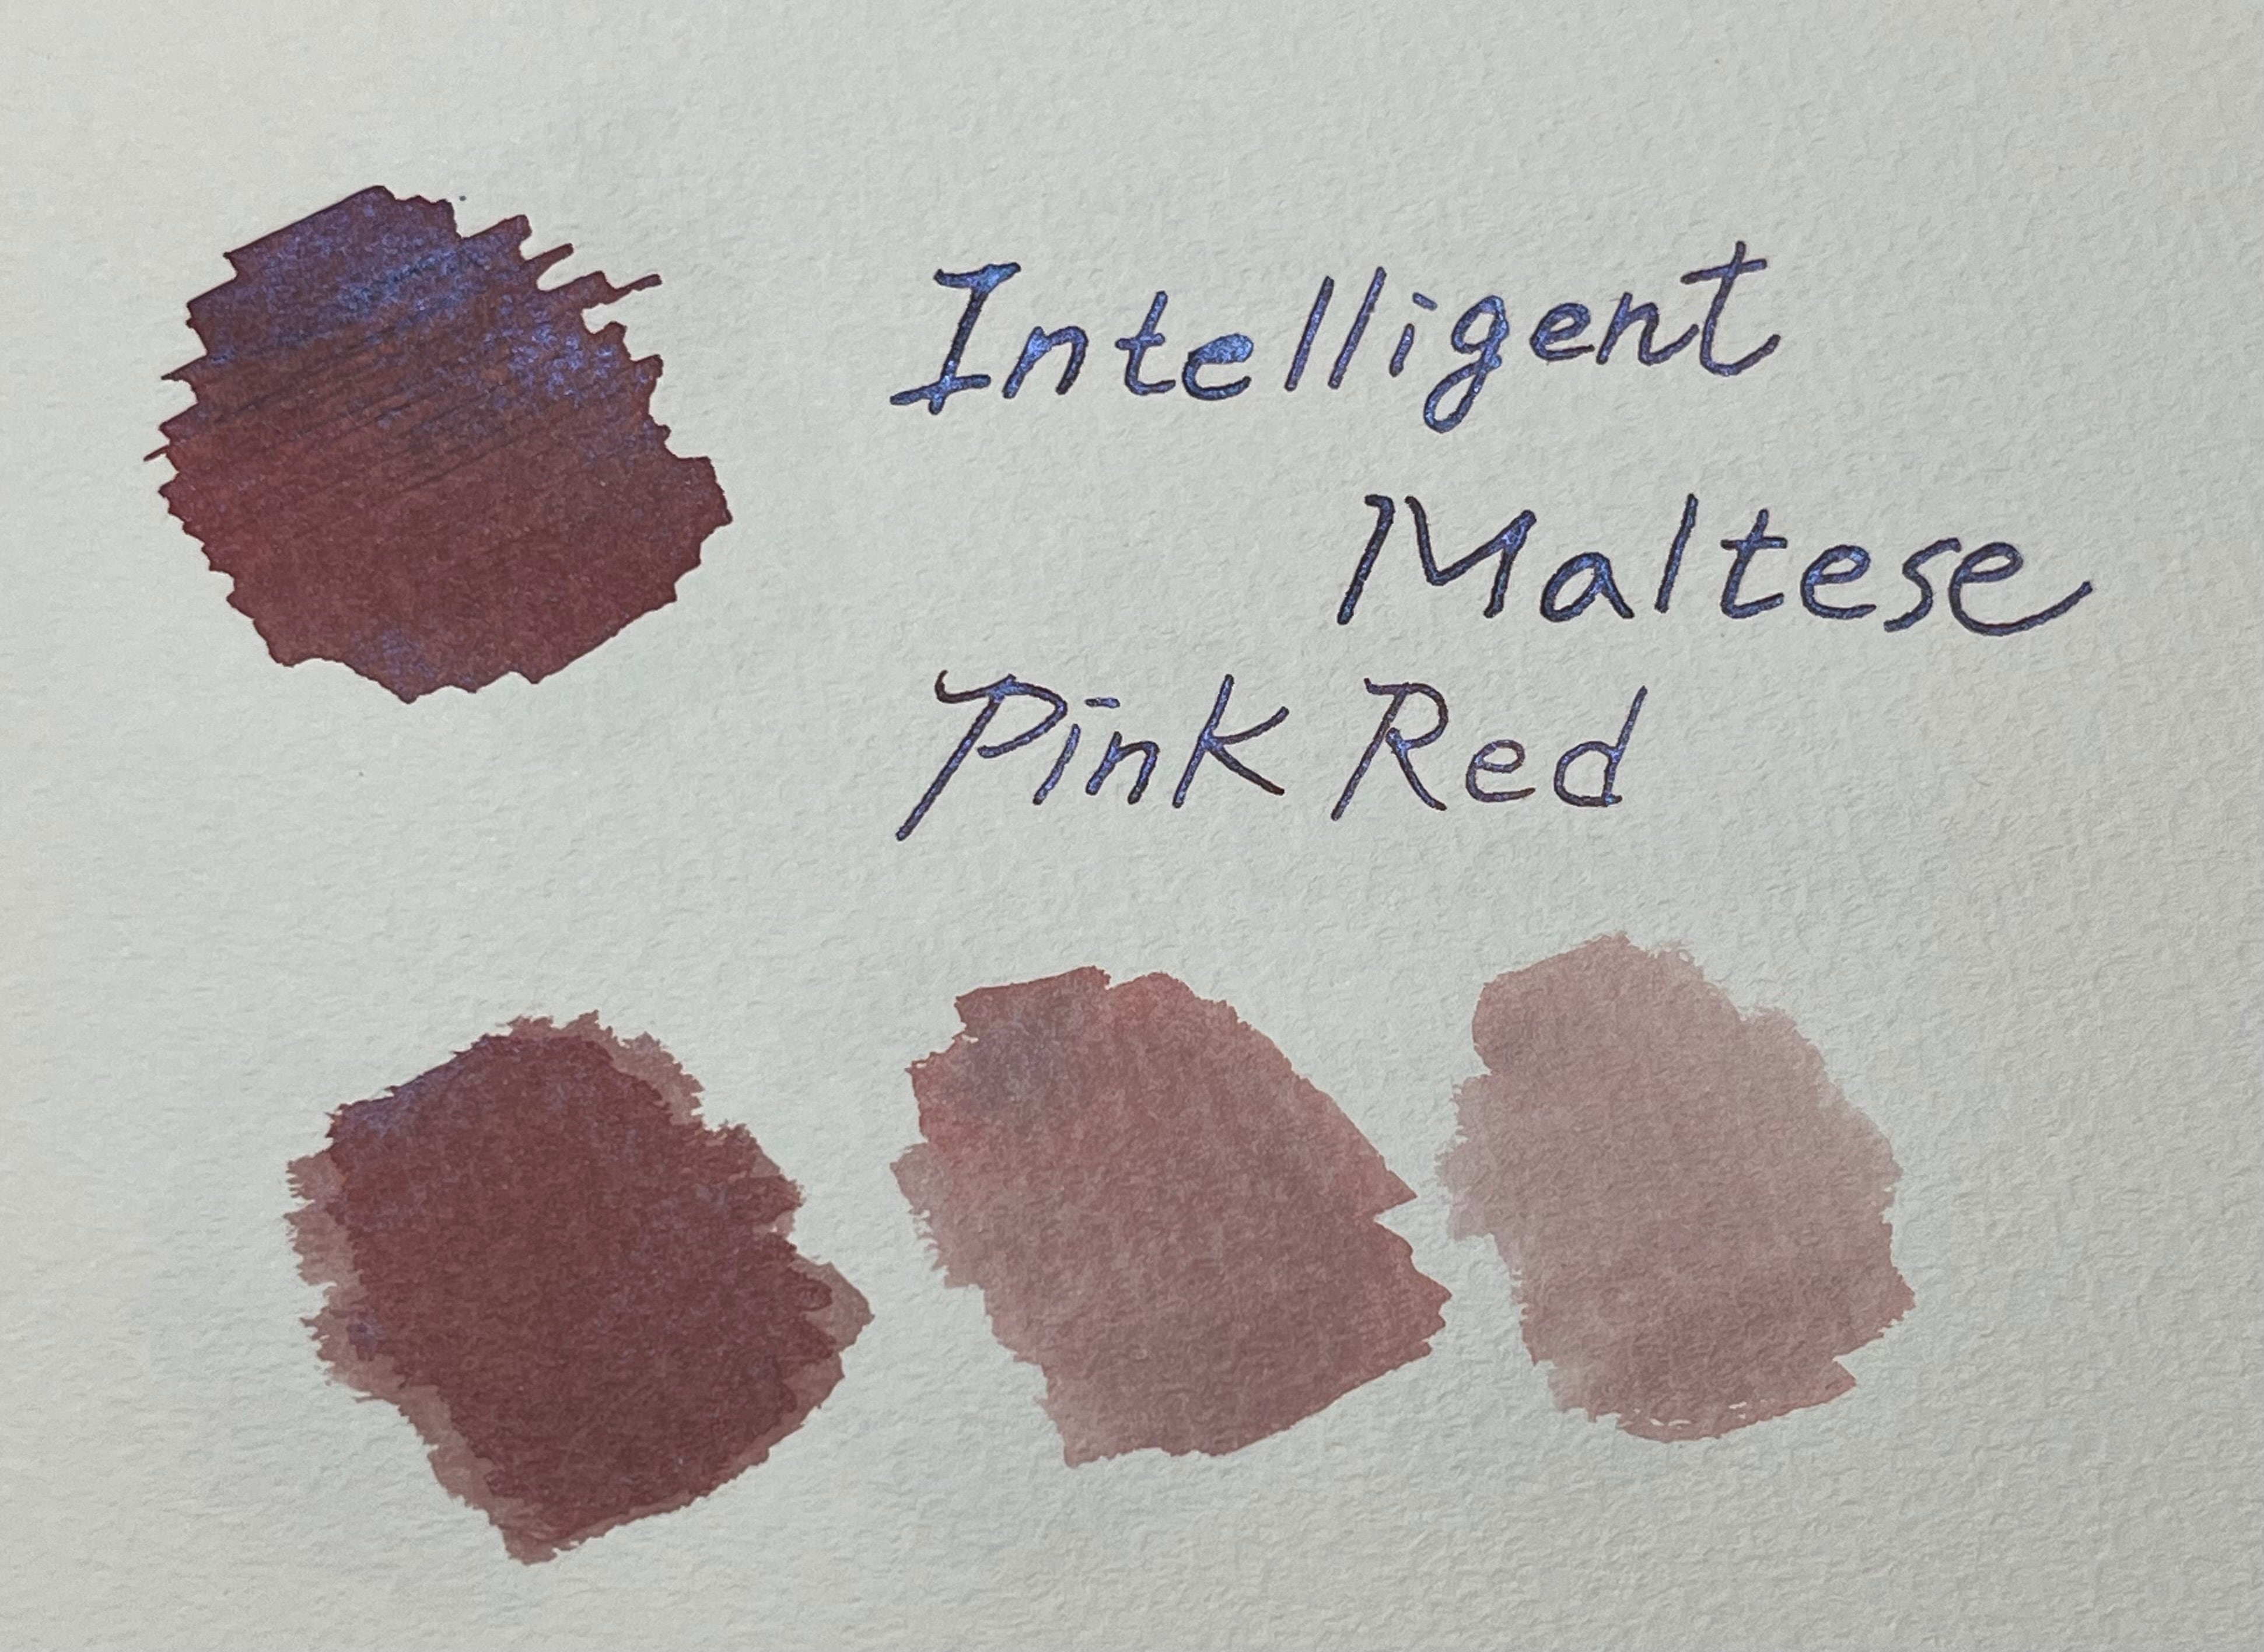 Intelligent
Maltese
Pink Red